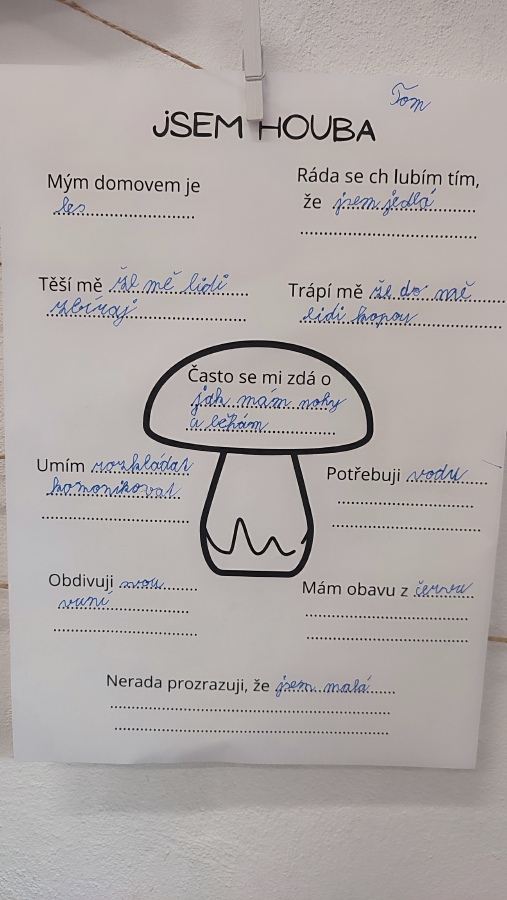 Tom
JSEM HOUBA
Mým domovem je
les
Ráda se ch lubím tím,
že jsem jedlá
Těší mě že mě lidi
sbíraj
Trápí mě že do mě
lidi kopou
Často se mi zdá o
jak mám nohy
a běhám
Umím rozkládat
komonikovat
Potřebuji vodu
Obdivuji svou
vuní
Mám obavu z červu
Nerada prozrazuji, že jsem malá